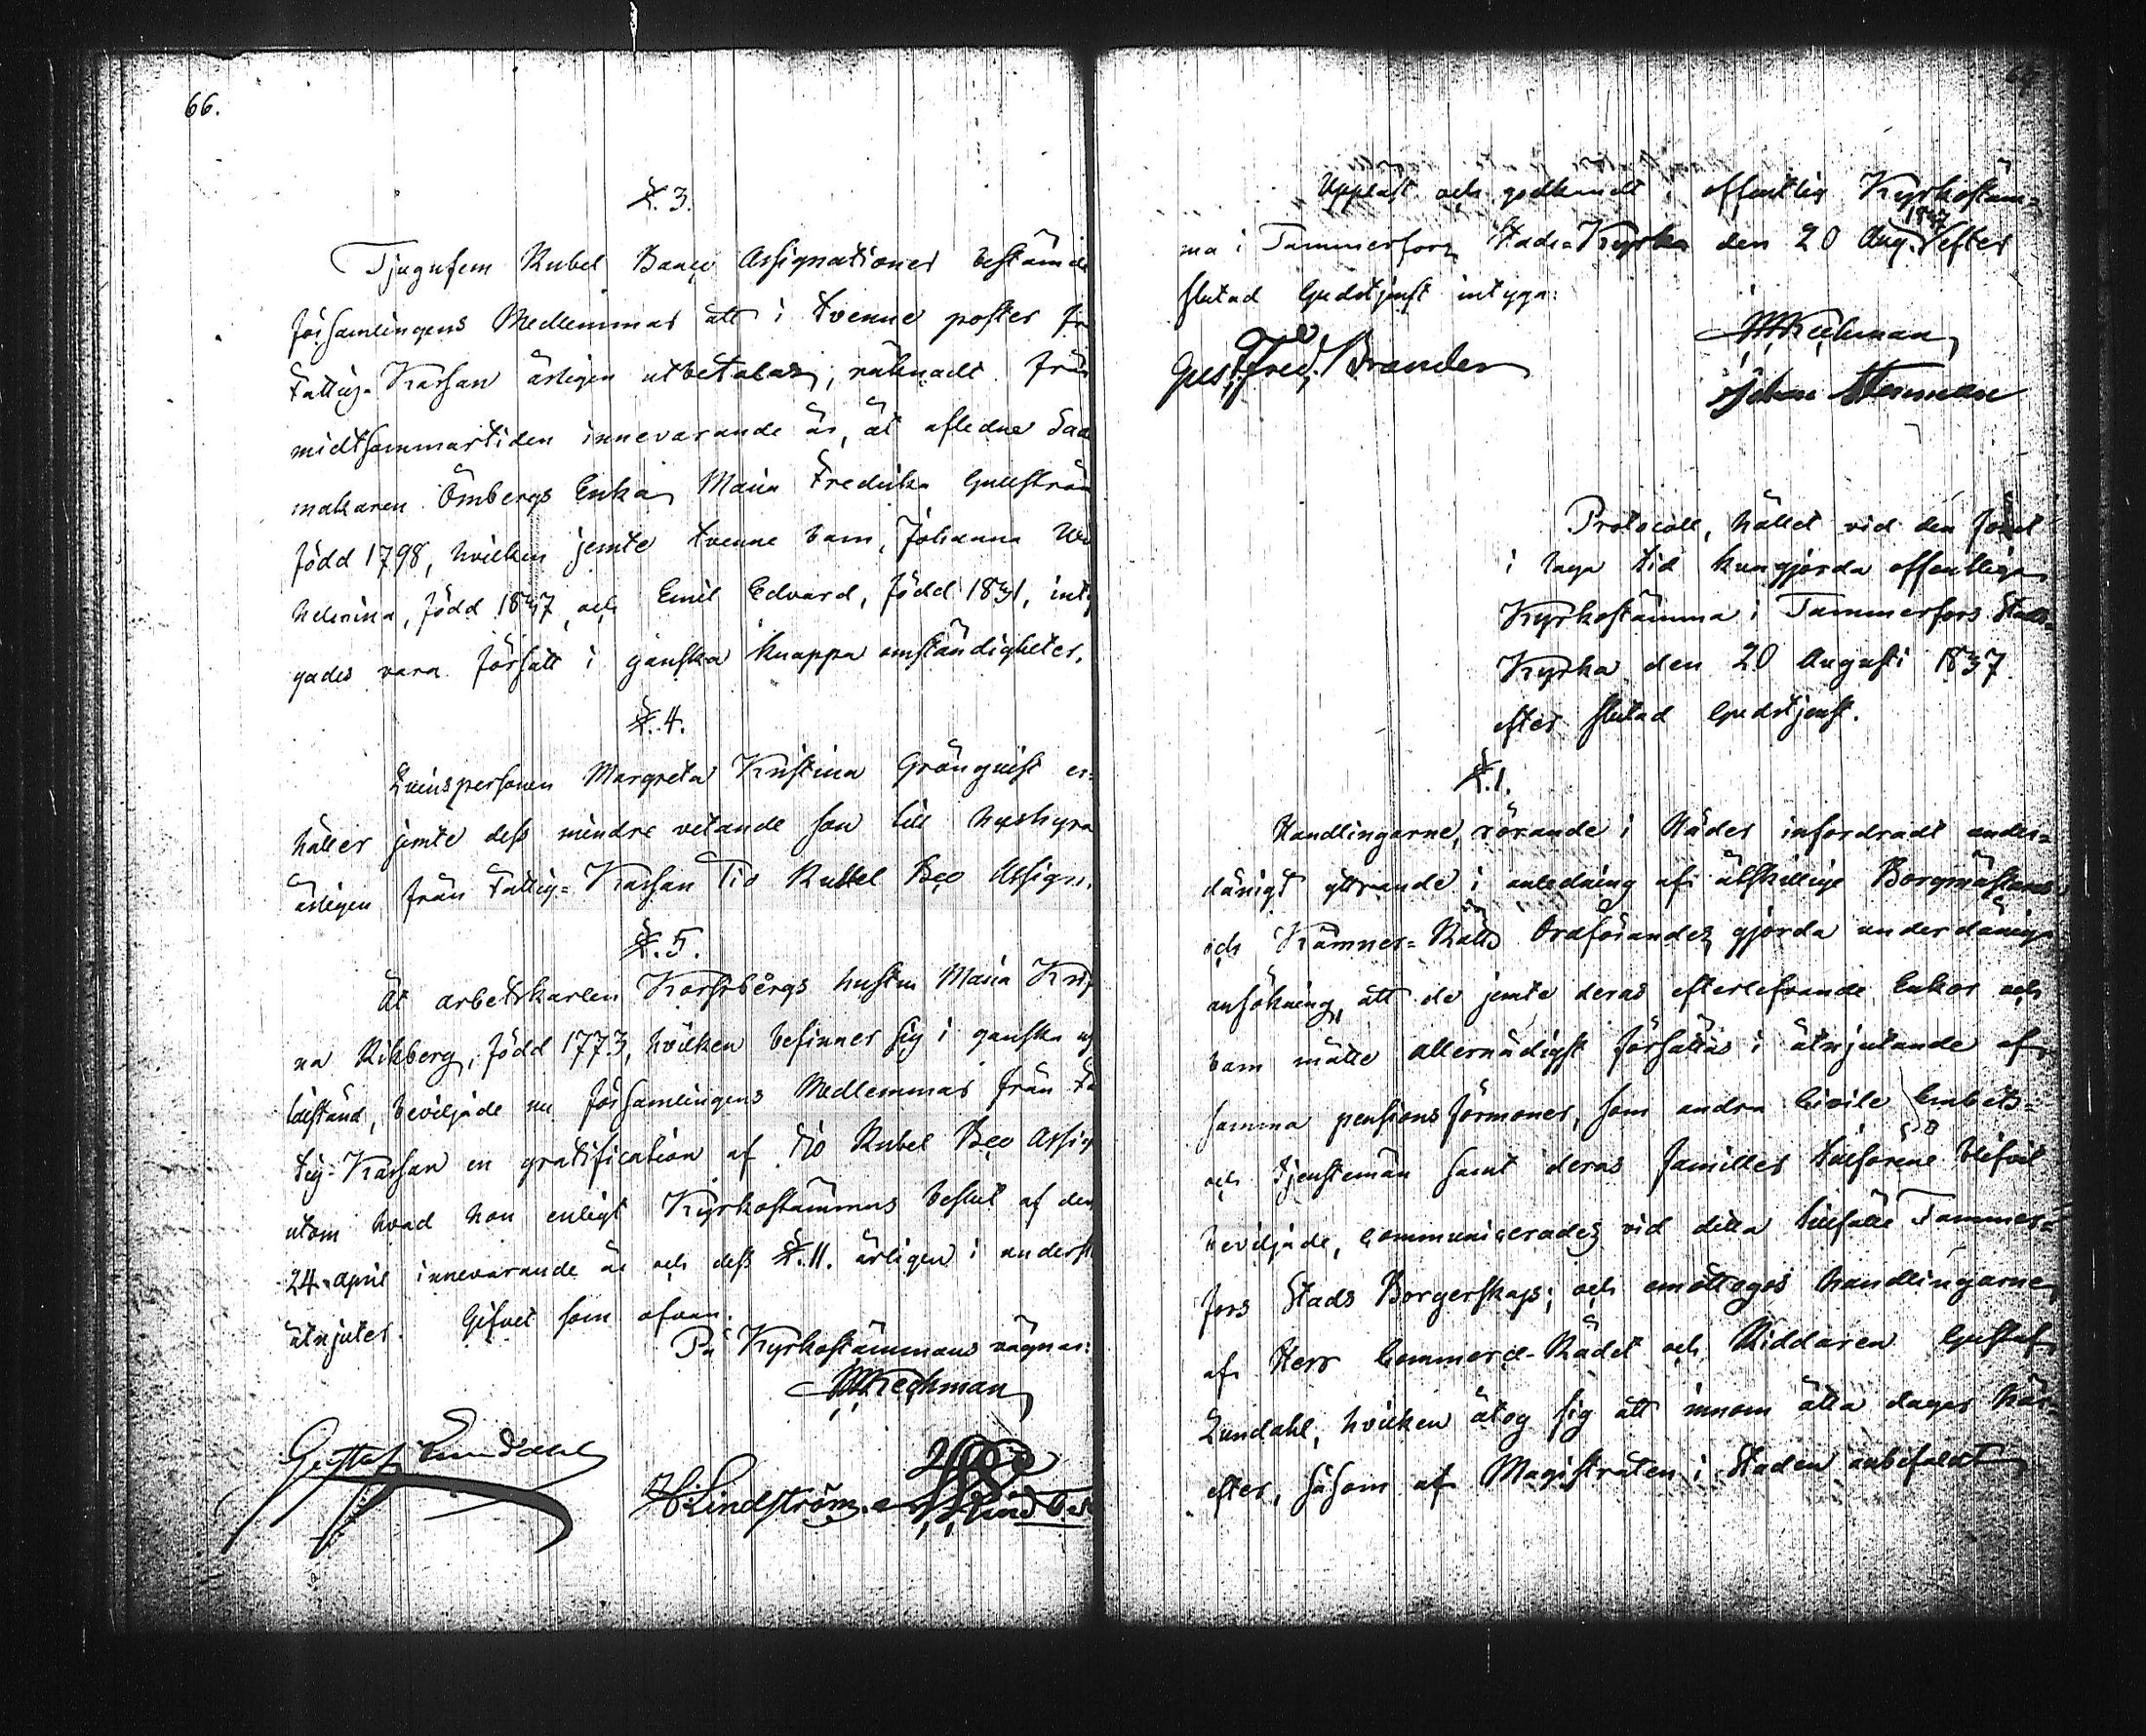 66.
§. 3.
Tjugufem Rubel Banco Assignationer bestämde
församlingens Medlemmar att i tvenne poster fr
Fattig-Kassan årligen utbetalas, räknadt från
midtsommartiden innevarande år, åt afledne Sad
makaren Örnbergs Enka, Maria Fredrika Gullströ
född 1798, hvilken jemte tvenne barn, Johanna
helmina, född 1837, och Emil Edvard, född 1831, inty
gades vara försatt i ganska knappa omständigheter.
§. 4.
Qvinspersonen Margreta Kristina Grönqvist er-
håller jemte dess mindre vetande son till hushyra
årligen från Fattig-Kassan Tio Rubel Bco Assign.
§. 5.
Åt arbetskarlen Korsbergs hustru Maria Kris
na Rikberg, född 1773, hvilken befinner sig i ganska
tillstånd, beviljade nu församlingens Medlemmar från Fa
tig-Kassan en gratification af Tio Rubel Bco Assig
utom hvad hon enligt Kyrkostämmans beslut af den
24 april innevarande år och dess §. 11. årligen i underst
åtnjuter. Gifvet som ofvan.
På Kyrkostämmans vägnar:
Gustaf Lundahl
H Lindström
Uppläst och godkändt i offentlig Kyrkostäm-
ma i Tammerfors Stads-Kyrka den 20 Aug. 1837 efter
slutad Gudstjenst intyga:
Gust. Fred. Brander
Johan Stenman
Protocoll, hållet vid den förut
i laga tid kungjorda offentliga
Kyrkostämma i Tammerfors Stads-
Kyrka den 20 Augusti 1837
efter slutad Gudstjenst.
§. 1.
Handlingarne, rörande i Nåder infordradt under-
dånigt yttrande i anledning af åtskillige Borgmästares
och Kämners-Rätts Ordförandes gjorda underdåniga
ansökning, att de jemte deras efterlefvande Enkor och
barn måtte allernådigst försättas i åtnjutande af
samma pensions förmoner, som andra Civile Embets-
och Tjenstemän samt deras familler tillförene blifvit
beviljade, communicerades vid detta tillfälle Tammer-
fors Stads Borgerskap; och emottogos handlingarne
af Herr Commerce-Rådet och Riddaren Gustaf
Lundahl, hvilken åtog sig att innom åtta dagar här-
efter, såsom af Magistraten i Staden anbefaldt